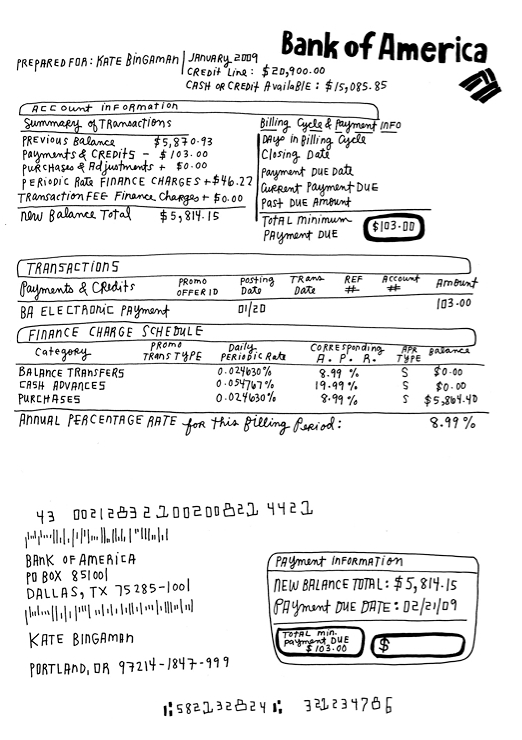 Bank of America
PREPARED FOR: KATE BINGAMAN
JANUARY 2009
CREDIT Line: $20,900.00
CASH OR CREDIT AVAILABLE: $15,085.85
ACCOUNT INFORMATION
Summary of Transactions
PREVIOUS BALANCE $5,870.93
PAYMENTS & CREDITS - $103.00
PURCHASES & Adjustments + $0.00
PERIODIC Rate FINANCE CHARGES + $46.22
TRANSACTION FEE Finance Charges + $0.00
new Balance Total $5,814.15
Billing Cycle & Payment INFO
DAYS in Billing Cycle
Closing Date
Payment DUE Date
Current Payment DUE
Past DUE Amount
TOTAL Minimum
PAYMENT DUE $103.00
TRANSACTIONS
Payments & Credits PROMO OFFER ID POSTING Date TRANS Date REF # Account # Amount
BA ELECTRONIC Payment 01/20 103.00
FINANCE CHARGE SCHEDULE
Category PROMO TRANS TYPE Daily PERIODIC Rate CORRESPONDING A. P. R. APR TYPE Balance
BALANCE TRANSFERS 0.024630% 8.99 % S $0.00
CASH ADVANCES 0.054767% 19.99 % S $0.00
PURCHASES 0.024630% 8.99 % S $5,864.40
ANNUAL PERCENTAGE RATE for this Billing Period: 8.99 %
43 002128321002008214421
BANK OF AMERICA
PO BOX 851001
DALLAS, TX 75285-1001
KATE BINGAMAN
PORTLAND, OR 97214-1847-999
PAYMENT INFORMATION
NEW BALANCE TOTAL: $5,814.15
PAYMENT DUE DATE: 02/21/09
TOTAL min.
payment DUE
$103.00
$
582132824 321234786